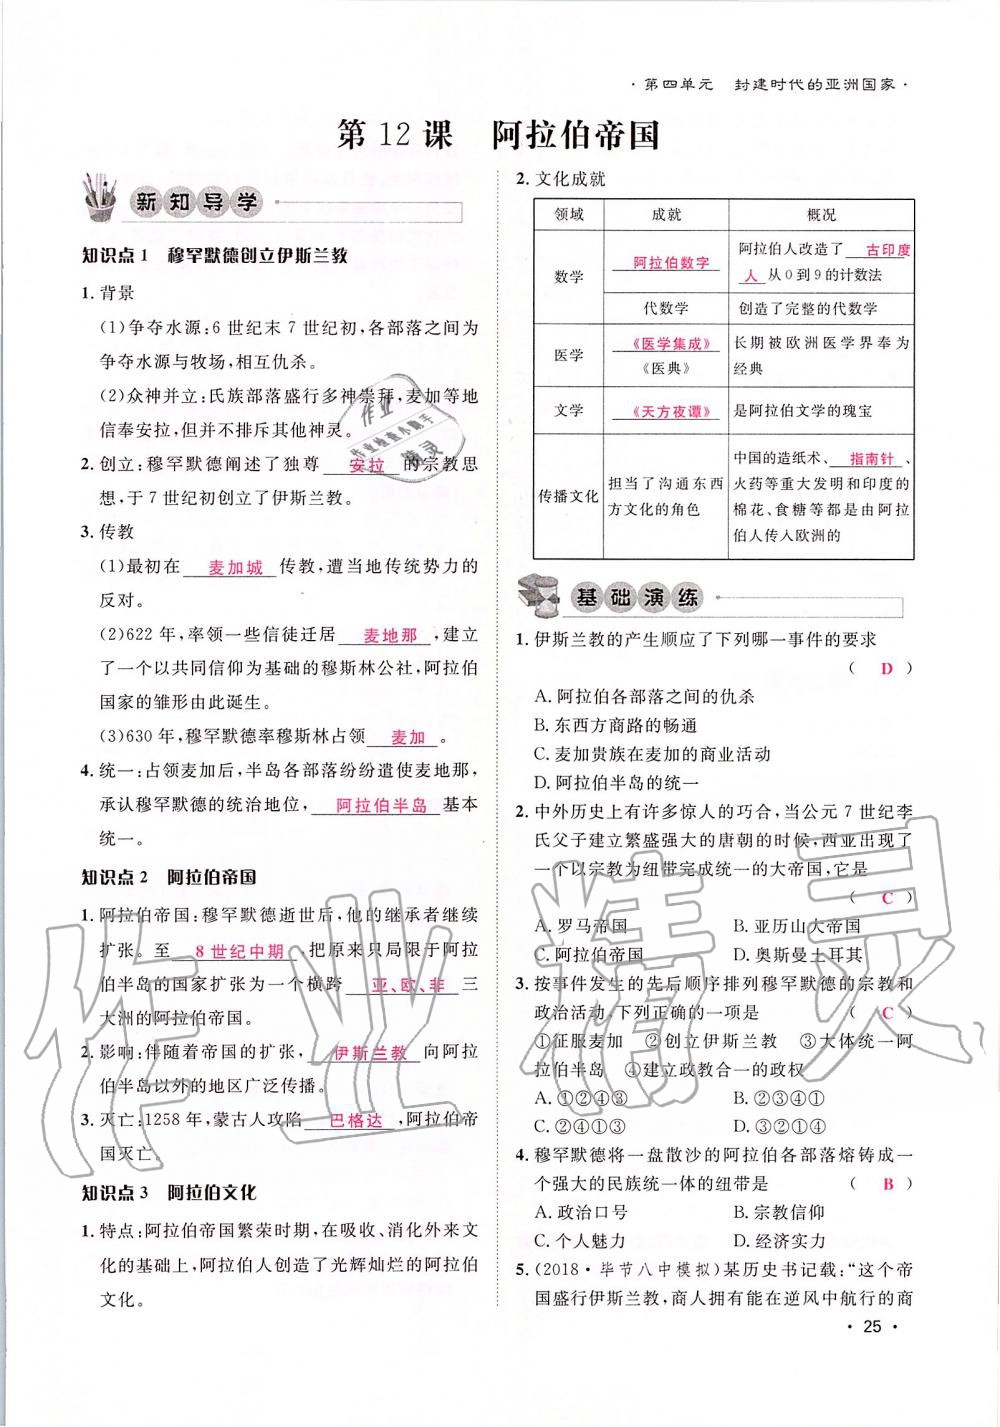 ·第四单元 封建时代的亚洲国家·
第 12 课 阿拉伯帝国
新知导学
知识点 1 穆罕默德创立伊斯兰教
1. 背景
(1)争夺水源:6 世纪末 7 世纪初,各部落之间为
争夺水源与牧场,相互仇杀。
(2)众神并立:氏族部落盛行多神崇拜,麦加等地
信奉安拉,但并不排斥其他神灵。
2. 创立:穆罕默德阐述了独尊 安拉 的宗教思
想,于 7 世纪初创立了伊斯兰教。
3. 传教
(1)最初在 麦加城 传教,遭当地传统势力的
反对。
(2)622 年,率领一些信徒迁居 麦地那 ,建立
了一个以共同信仰为基础的穆斯林公社,阿拉伯
国家的雏形由此诞生。
(3)630 年,穆罕默德率穆斯林占领 麦加 。
4. 统一:占领麦加后,半岛各部落纷纷遣使麦地那,
承认穆罕默德的统治地位, 阿拉伯半岛 基本
统一。
知识点 2 阿拉伯帝国
1. 阿拉伯帝国:穆罕默德逝世后,他的继承者继续
扩张。至 8 世纪中期 ,把原来只局限于阿拉
伯半岛的国家扩张为一个横跨 亚、欧、非 三
大洲的阿拉伯帝国。
2. 影响:伴随着帝国的扩张, 伊斯兰教 向阿拉
伯半岛以外的地区广泛传播。
3. 灭亡:1258 年,蒙古人攻陷 巴格达 ,阿拉伯帝
国灭亡。
知识点 3 阿拉伯文化
1. 特点:阿拉伯帝国繁荣时期,在吸收、消化外来文
化的基础上,阿拉伯人创造了光辉灿烂的阿拉伯
文化。
2. 文化成就
领域 成就 概况
数学 阿拉伯数字 阿拉伯人改造了 古印度
人 从 0 到 9 的计数法
代数学 创造了完整的代数学
医学 《医学集成》 《医典》 长期被欧洲医学界奉为
经典
文学 《天方夜谭》 是阿拉伯文学的瑰宝
传播文化 担当了沟通东西
方文化的角色
中国的造纸术、 指南针 、
火药等重大发明和印度的
棉花、食糖等都是由阿拉
伯人传入欧洲的
基础演练
1. 伊斯兰教的产生顺应了下列哪一事件的要求
( D )
A. 阿拉伯各部落之间的仇杀
B. 东西方商路的畅通
C. 麦加贵族在麦加的商业活动
D. 阿拉伯半岛的统一
2. 中外历史上有许多惊人的巧合,当公元 7 世纪李
氏父子建立繁盛强大的唐朝的时候,西亚出现了
一个以宗教为纽带完成统一的大帝国,它是
( C )
A. 罗马帝国 B. 亚历山大帝国
C. 阿拉伯帝国 D. 奥斯曼土耳其
3. 按事件发生的先后顺序排列穆罕默德的宗教和
政治活动,下列正确的一项是 ( C )
①征服麦加 ②创立伊斯兰教 ③大体统一阿
拉伯半岛 ④建立政教合一的政权
A. ①②③④ B. ②③④①
C. ②④①③ D. ④①②③
4. 穆罕默德将一盘散沙的阿拉伯各部落熔铸成一
个强大的民族统一体的纽带是 ( B )
A. 政治口号 B. 宗教信仰
C. 个人魅力 D. 经济实力
5. (2018·毕节八中模拟)某历史书记载:“这个帝
国盛行伊斯兰教,商人拥有能在逆风中航行的商
·25·
作业
作业检查小助手
精灵
作业精灵